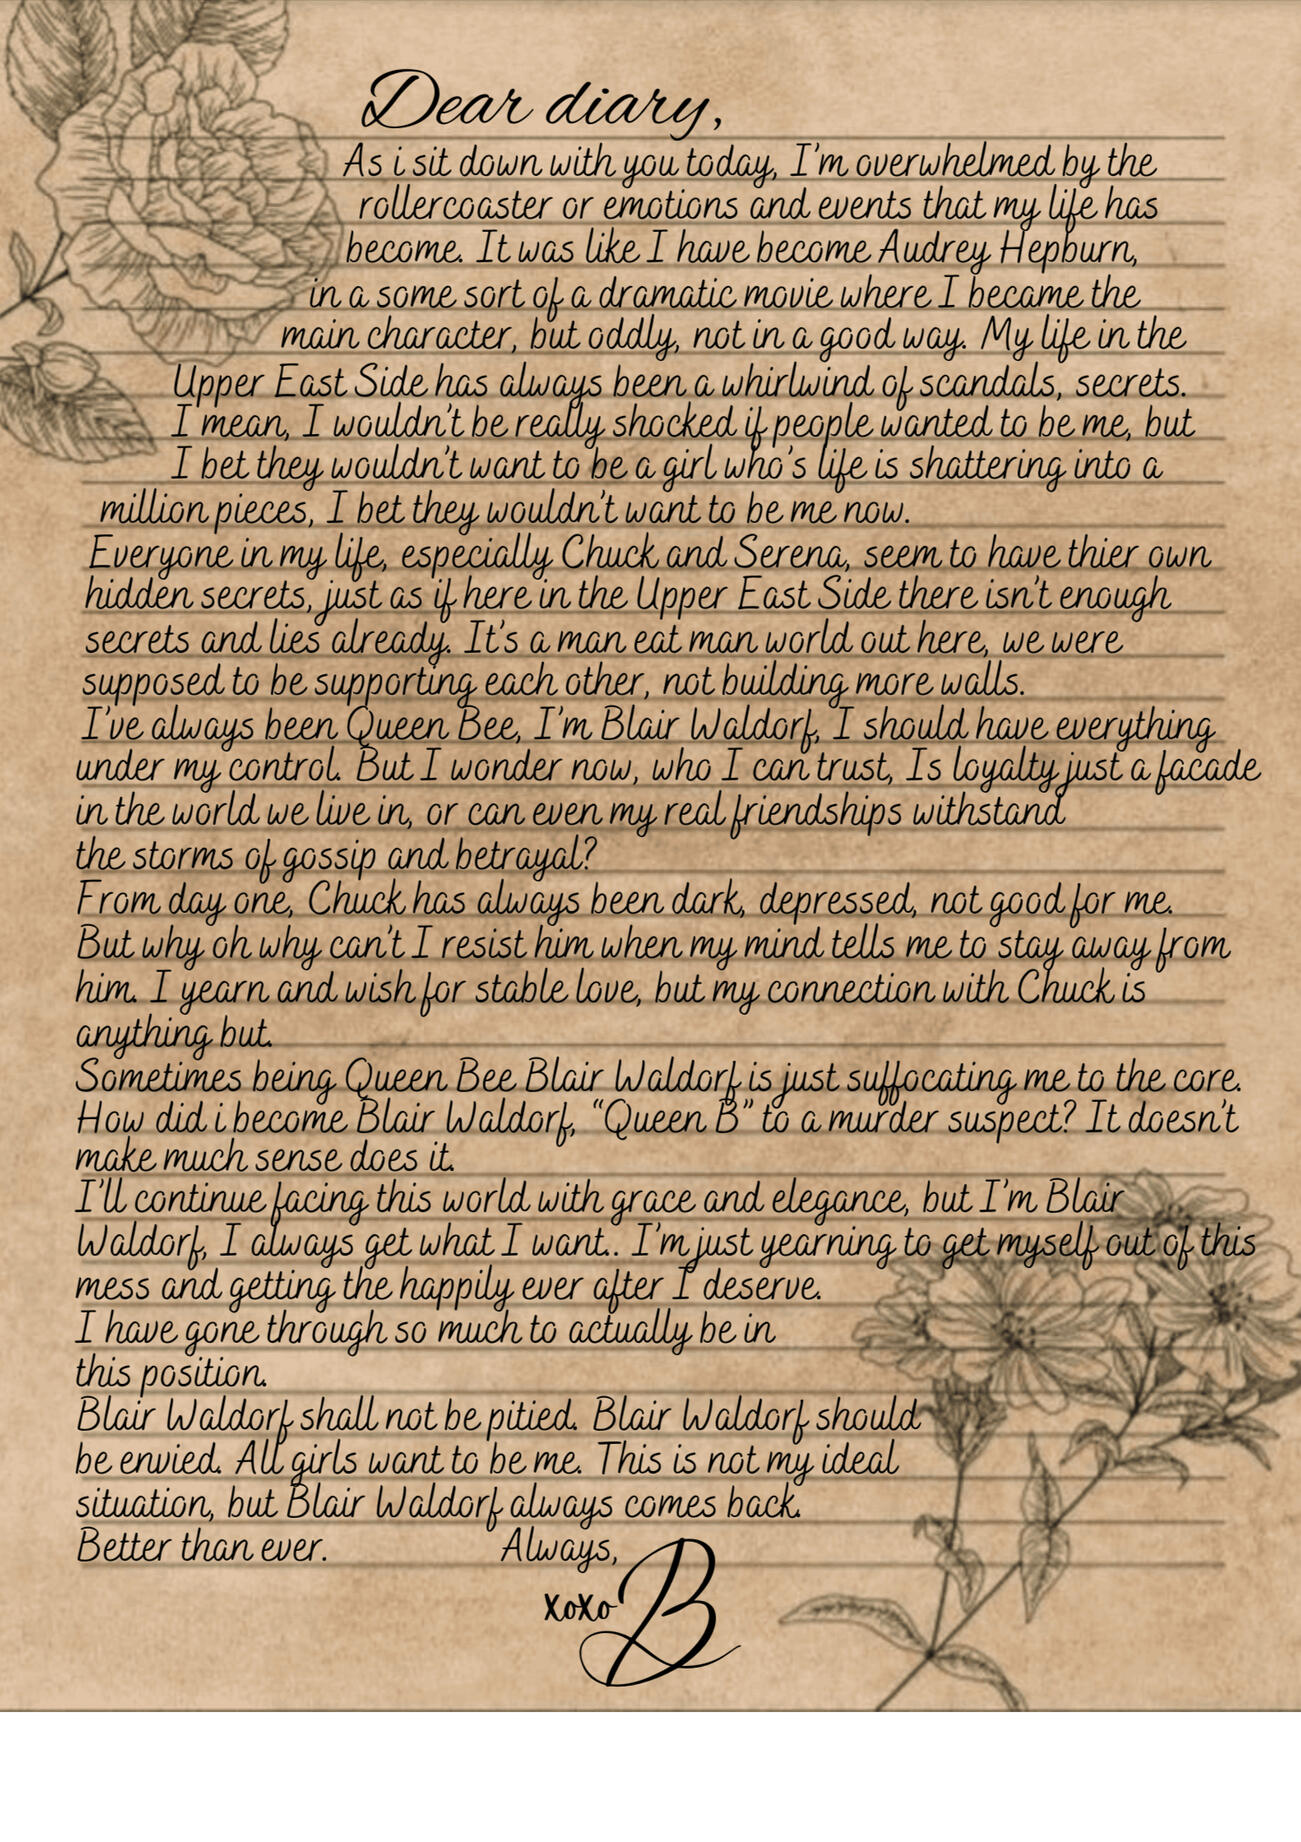 Dear diary,
As i sit down with you today, I'm overwhelmed by the
rollercoaster or emotions and events that my life has
become. It was like I have become Audrey Hepburn,
in a some sort of a dramatic movie where I became the
main character, but oddly, not in a good way. My life in the
Upper East Side has always been a whirlwind of scandals, secrets.
I mean, I wouldn't be really shocked if people wanted to be me, but
I bet they wouldn't want to be a girl who's life is shattering into a
million pieces, I bet they wouldn't want to be me now.
Everyone in my life, especially Chuck and Serena, seem to have thier own
hidden secrets, just as if here in the Upper East Side there isn't enough
secrets and lies already. It's a man eat man world out here, we were
supposed to be supporting each other, not building more walls.
I've always been Queen Bee, I'm Blair Waldorf, I should have everything
under my control. But I wonder now, who I can trust, Is loyalty just a facade
in the world we live in, or can even my real friendships withstand
the storms of gossip and betrayal?
From day one, Chuck has always been dark, depressed, not good for me.
But why oh why can't I resist him when my mind tells me to stay away from
him. I yearn and wish for stable love, but my connection with Chuck is
anything but.
Sometimes being Queen Bee Blair Waldorf is just suffocating me to the core.
How did i become Blair Waldorf, "Queen B" to a murder suspect? It doesn't
make much sense does it.
I'll continue facing this world with grace and elegance, but I'm Blair
Waldorf, I always get what I want.. I'm just yearning to get myself out of this
mess and getting the happily ever after I deserve.
I have gone through so much to actually be in
this position.
Blair Waldorf shall not be pitied. Blair Waldorf should
be envied. All girls want to be me. This is not my ideal
situation, but Blair Waldorf always comes back.
Better than ever. Always,
xoxo B